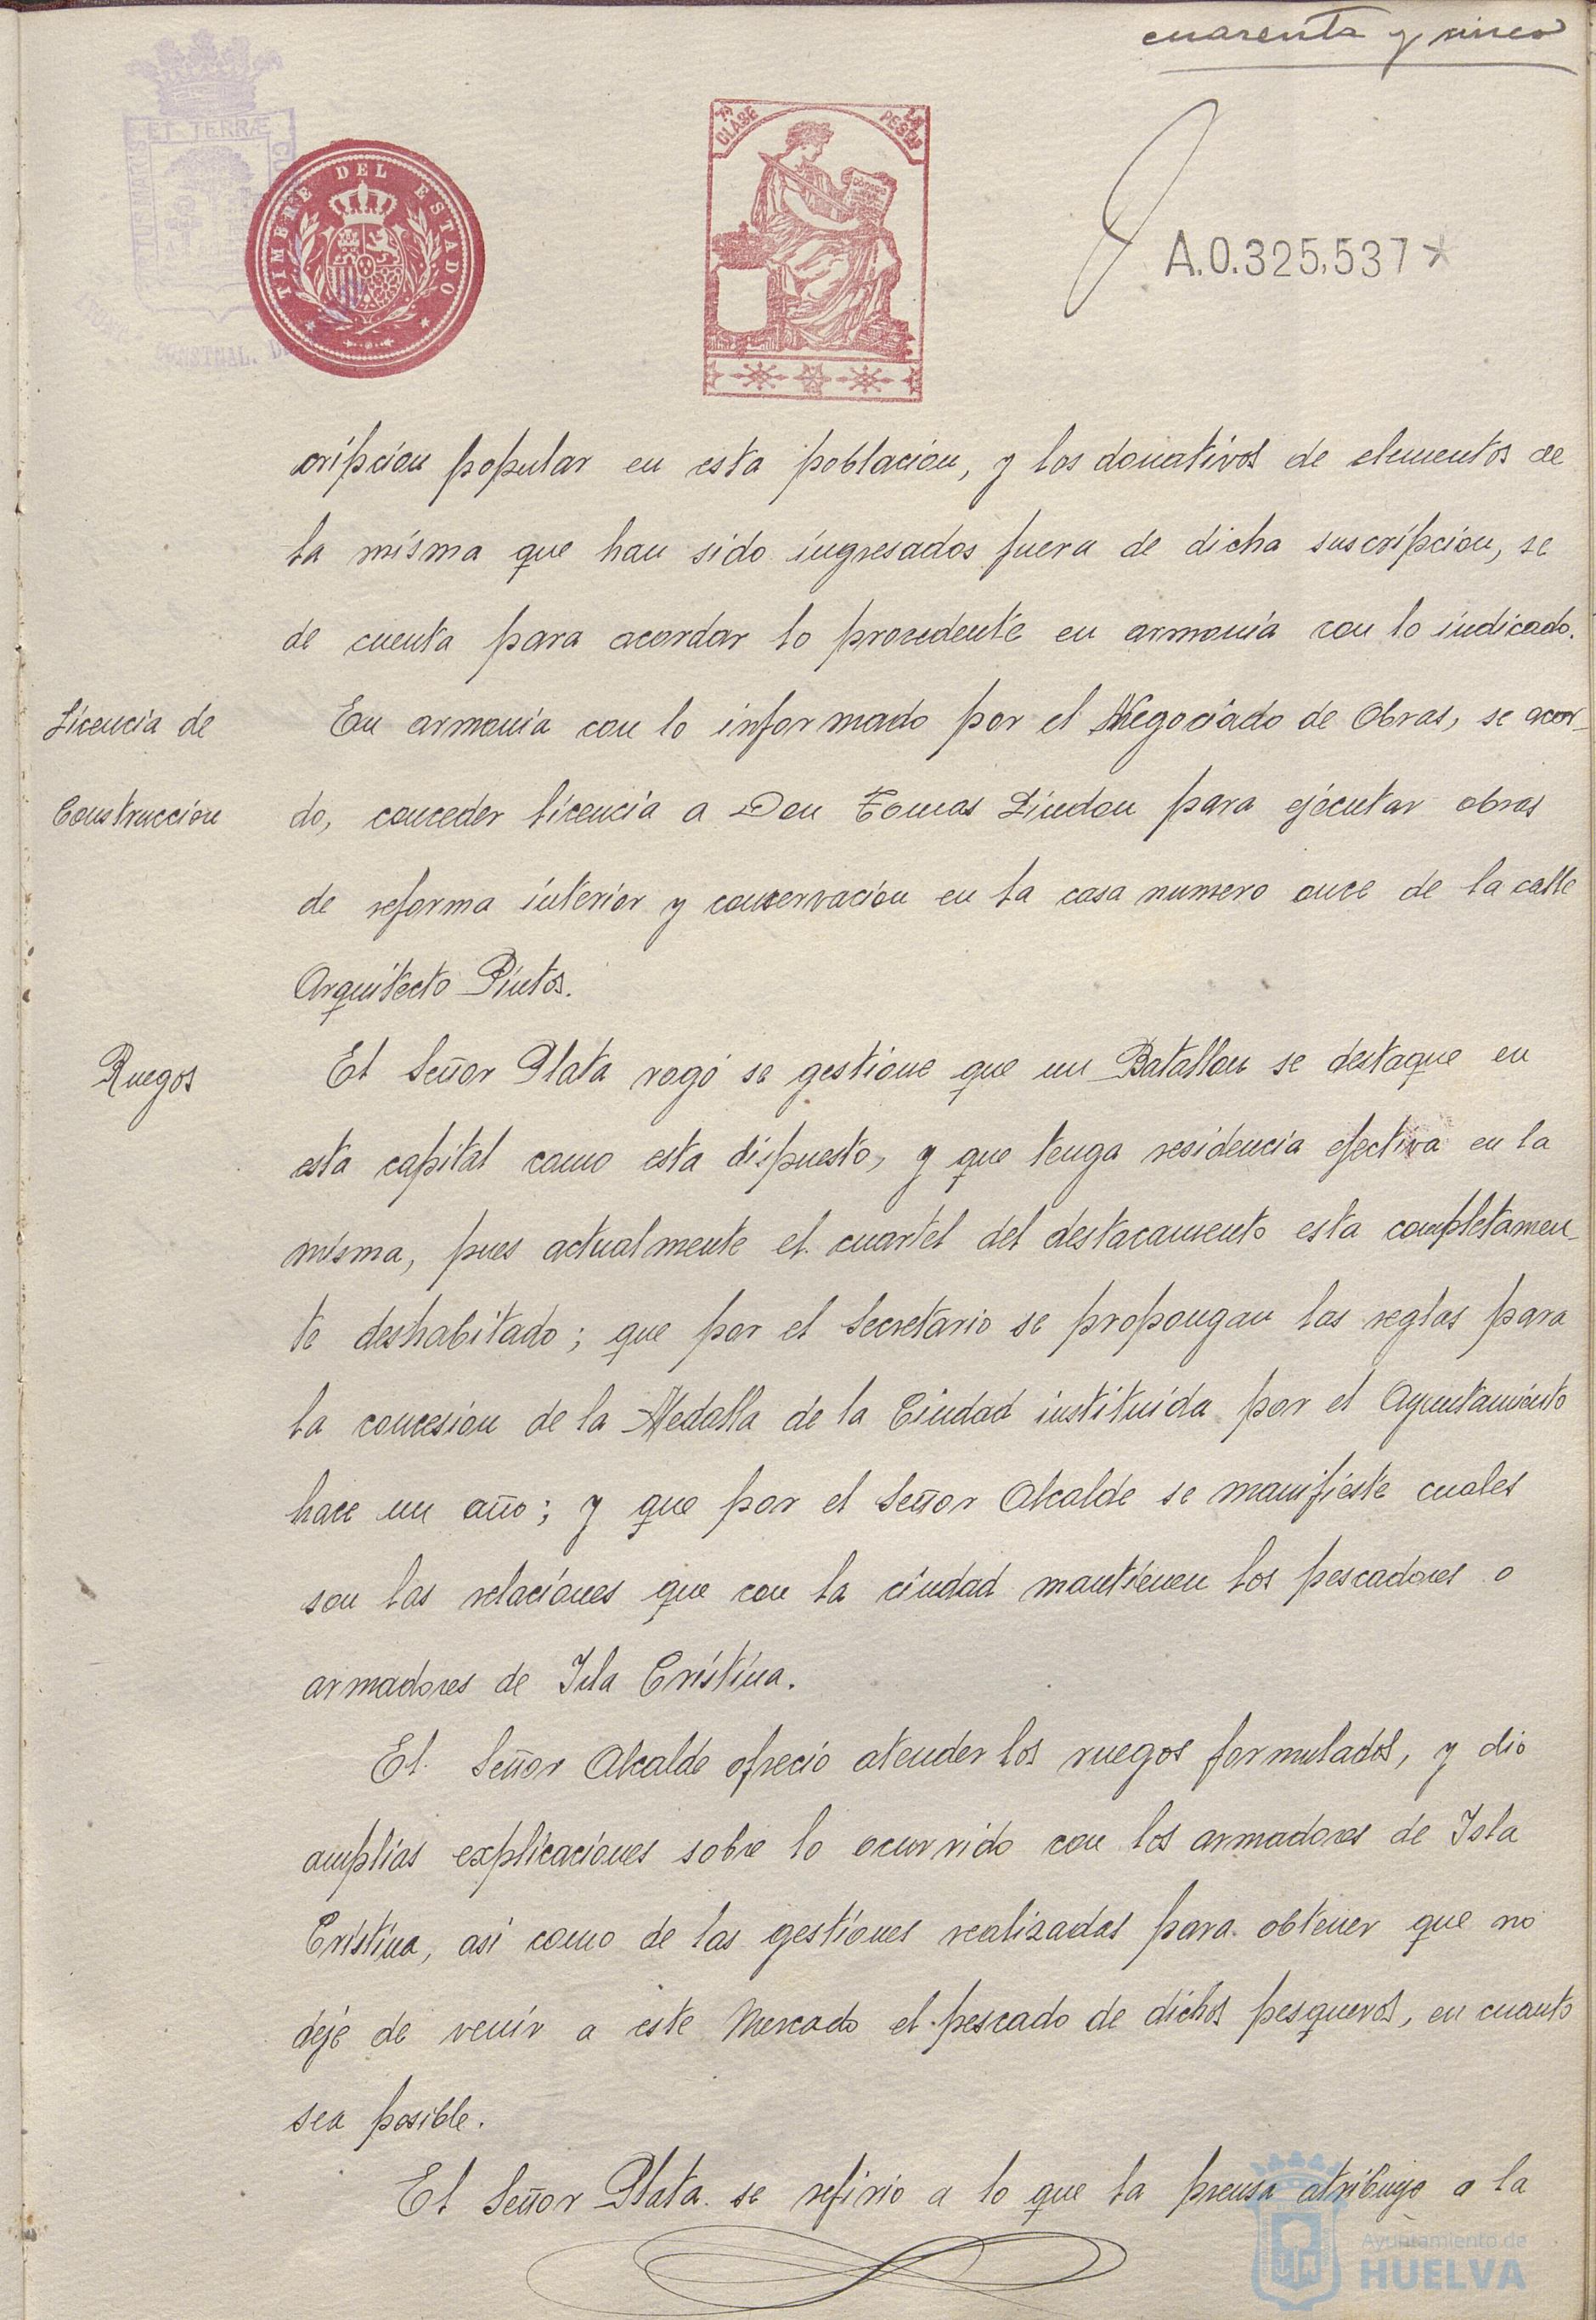 cuarenta y cinco
ET TERRÆ
TIMBRE DEL ESTADO
7ª CLASE
PESETA
A.0.325,537*
cripcion popular en esta poblacion, y los donativos de elementos de
la misma que han sido ingresados fuera de dicha suscripcion, se
de cuenta para acordar lo procedente en armonia con lo indicado.
Licencia de
Construccion
En armonia con lo informado por el Negociado de Obras, se acor-
do, conceder licencia a Don Tomas Lindon para ejecutar obras
de reforma interior y conservacion en la casa numero once de la calle
Arquitecto Pintos.
Ruegos
El Señor Plata rogó se gestione que un Batallon se destaque en
esta capital como esta dispuesto, y que tenga residencia efectiva en la
misma, pues actualmente el cuartel del destacamento esta completamen-
te deshabitado; que por el Secretario se propongan las reglas para
la concesion de la Medalla de la Ciudad instituida por el Ayuntamiento
hace un año; y que por el Señor Alcalde se manifieste cuales
son las relaciones que con la ciudad mantienen los pescadores o
armadores de Isla Cristina.
El Señor Alcalde ofreció atender los ruegos formulados, y dio
amplias explicaciones sobre lo ocurrido con los armadores de Isla
Cristina, asi como de las gestiones realizadas para obtener que no
deje de venir a este Mercado el pescado de dichos pesqueros, en cuanto
sea posible.
El Señor Plata se refirio a lo que la prensa atribuye a la
Ayuntamiento de
HUELVA